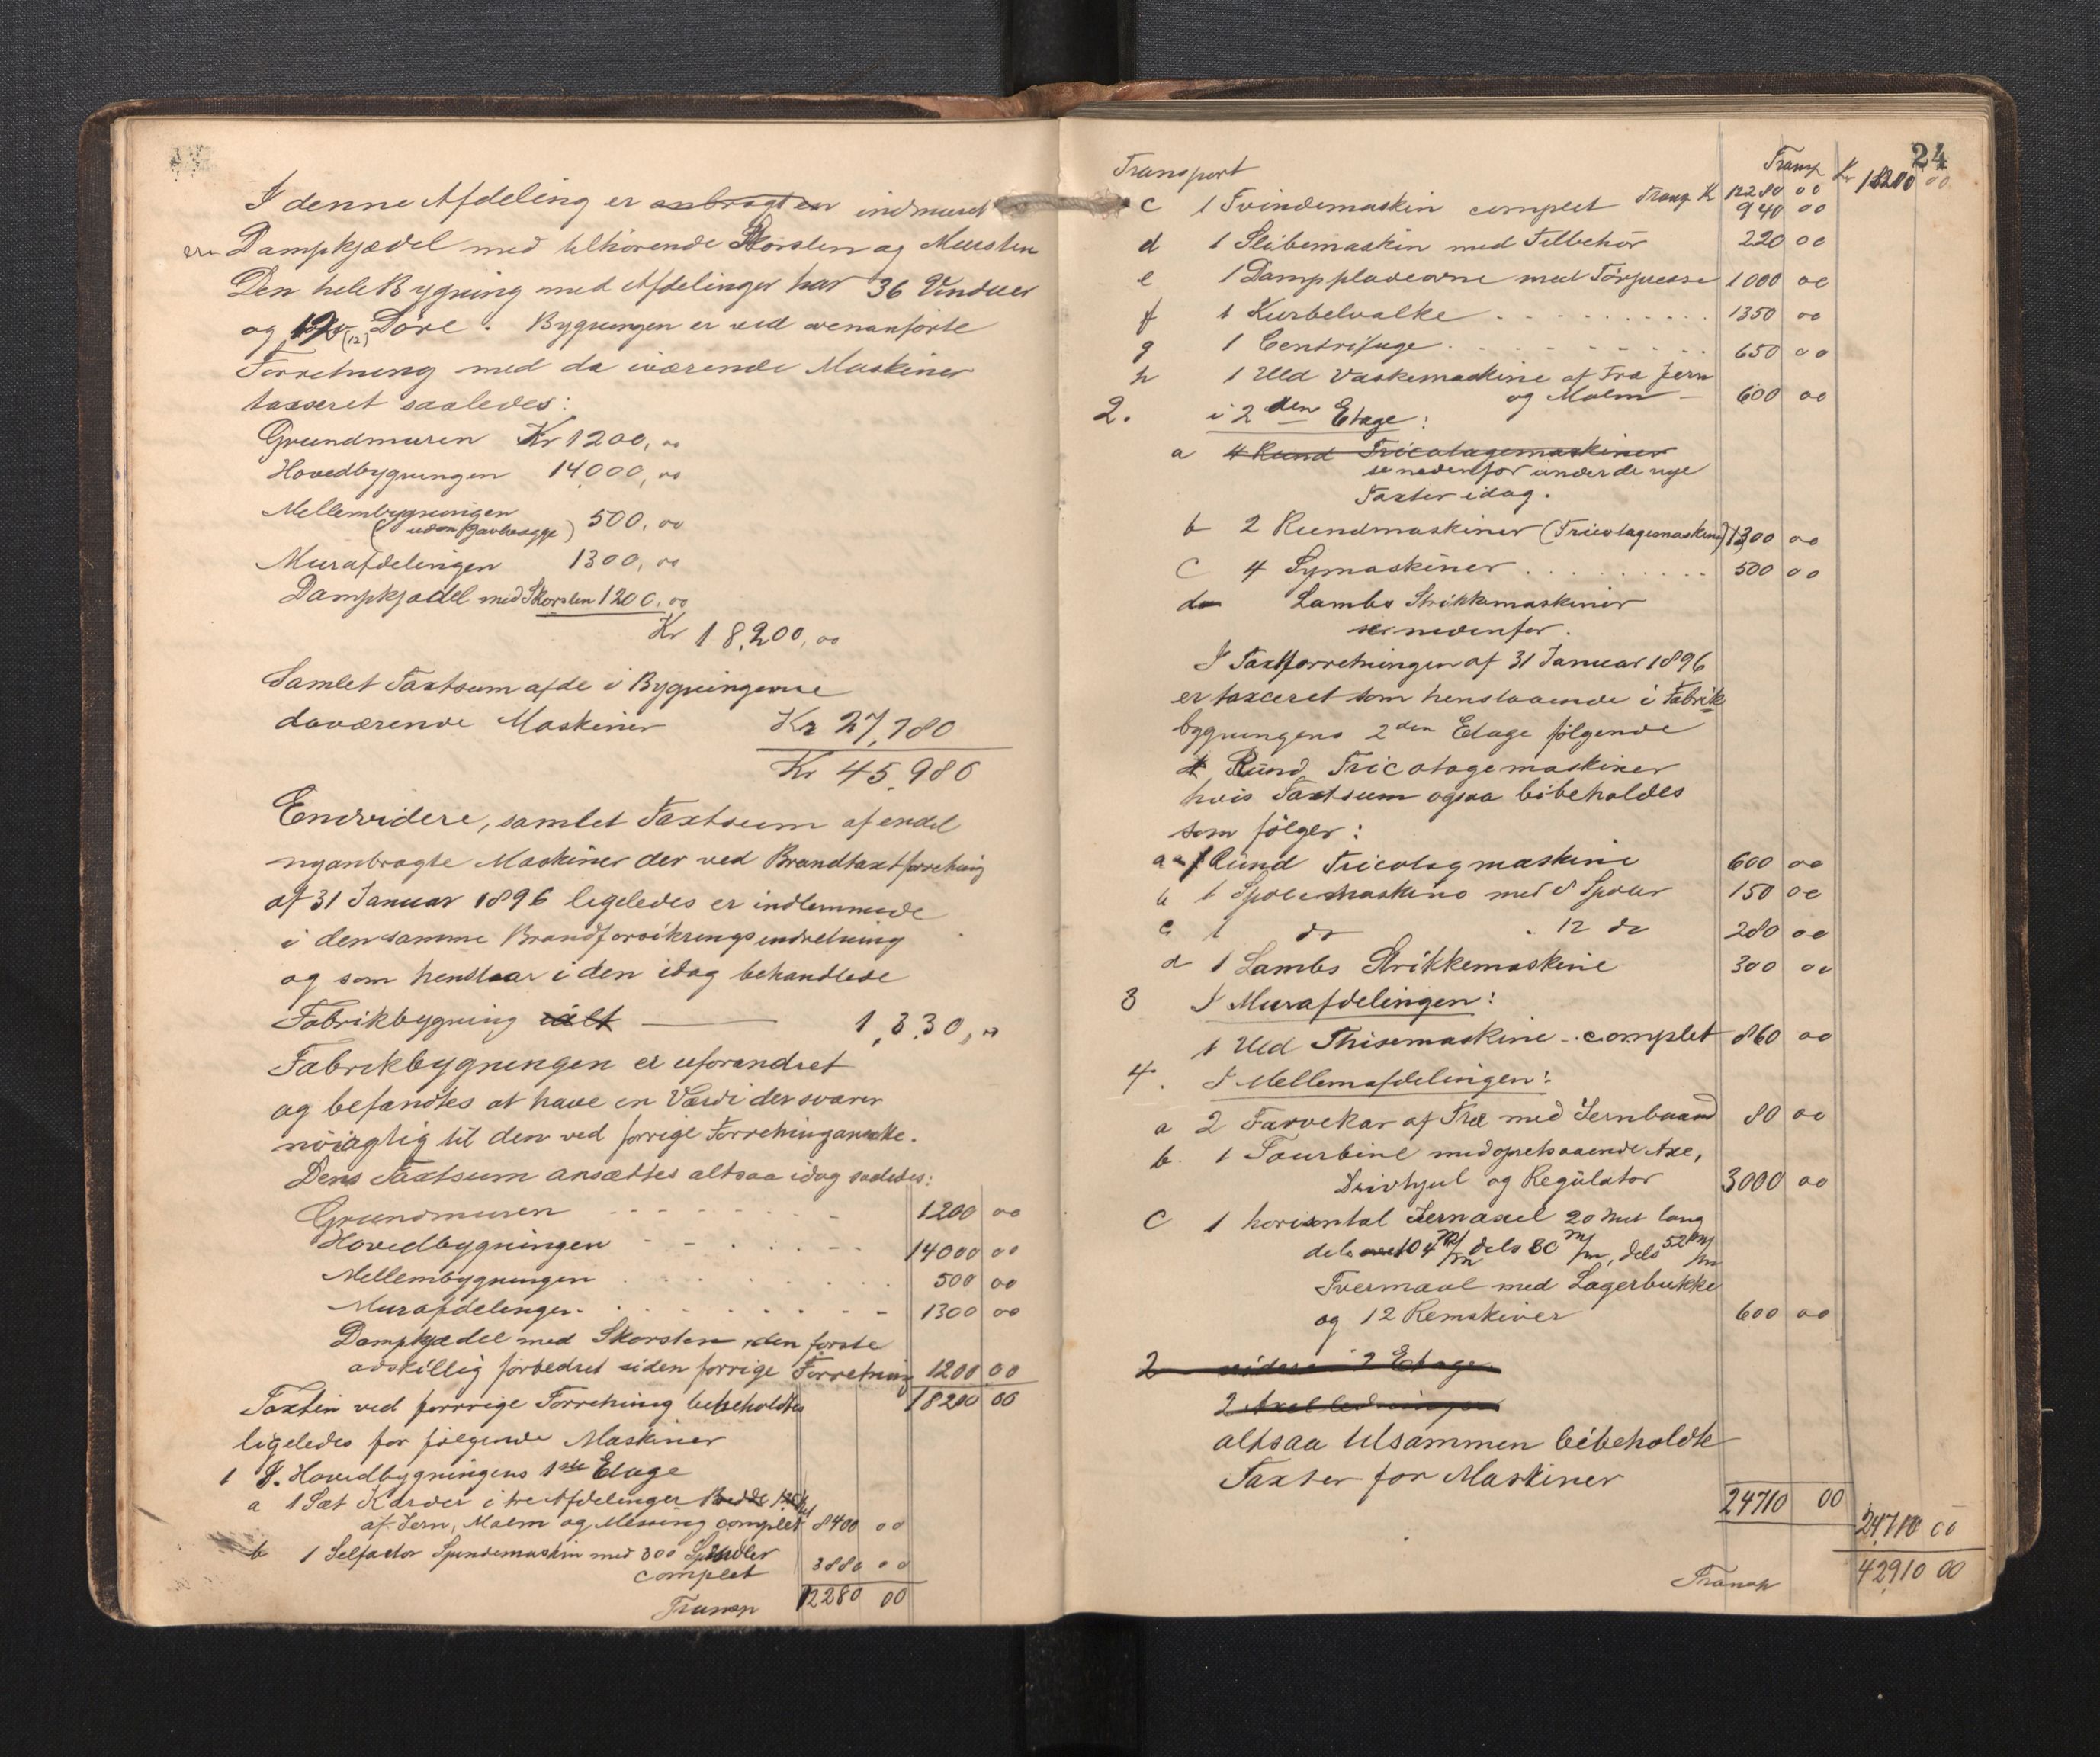 I denne Afdeling er anbragt en indmuret
en Dampkjædel med tilhørende Skorsten og Mursten
Den hele Bygning med Afdelinger har 36 Vinduer
og 12 (12) Døre. Bygningen er ved ovenanførte
Forretning med da iværende Maskiner
taxeret saaledes:
Grundmuren Kr 1200,00
Hovedbygningen 14,000,00
Mellembygningen
(uden Gavlvægge) 500,00
Murafdelingen 1300,00
Dampkjædel med Skorsten 1200,00
Kr 18,200,00
Samlet Taxtsum af de i Bygningerne
daværende Maskiner Kr 27,780
Kr 45,980
Endvidere, samlet Taxtsum af endel
nyanbragte Maskiner der ved Brandtaxtforretning
af 31 Januar 1896 ligeledes er indlemmede
i den samme Brandforsikringsindretning
og som henstaar i den idag behandlede
Fabrikbygning ialt — 1,330,00
Fabrikbygningen er uforandret
og befandtes at have en Værdi der svarer
nøiagtig til den ved forrige Forretning ansatte.
Dens Taxtsum ansættes altsaa idag saaledes:
Grundmuren 1200 00
Hovedbygningen 14000 00
Mellembygningen 500 00
Murafdelingen 1300 00
Dampkjædel med Skorsten, den første
adskillig forbedret siden forrige Forretning 1200 00
Taxten ved forrrige Forretning beibeholdtes 18200 00
ligeledes for følgende Maskiner
1 I. Hovedbygningens 1ste Etage
a 1 Sæt Karder i tre Afdelinger Bredde
af Jern, Malm og Messing complet 8400 00
b 1 Selfactor Spindemaskin med 300 Spindler
complet 3880 00
Transp 12280 00
24
Transport Transp Kr 18200 00
Transp. Kr 12280 00
c 1 Tvindemaskin complet 940 00
d 1 Slibemaskin med Tilbehør 220 00
e 1 Damppladeovne med Tørpresse 1000 00
f 1 Kurbelvalke 1350 00
g 1 Centrifuge 650 00
h 1 Uld Vaskemaskine af Træ Jern
og Malm — 600 00
2. i 2den Etage:
a 4 Rund Tricotagemaskiner
se nedenfor under de nye
Taxter idag.
b 2 Rundmaskiner (Tricotagemaskiner) 1300 00
c 4 Symaskiner 500 00
d Lambs Strikkemaskiner
se nedenfor.
I Taxtforretningen af 31 Januar 1896
er taxeret som henstaaende i Fabrik
bygningens 2den Etage følgende
Rund Tricotagemaskiner
hvis Taxtsum ogsaa bibeholdes
som følger:
a 1 Rund Tricotagmaskine 600 00
b 1 Spolemaskine med 8 Spoler 150 00
c 1 do . 12 do 280 00
d 1 Lambs Strikkemaskine 300 00
3 I Murafdelingen:
1 Uld Thisemaskine - complet 860 00
4. I Mellemafdelingen:
a 2 Farvekar af Træ med Jernbaand 80 00
b. 1 Tourbine med opretstaaende Axe,
Drivhjul og Regulator 3000 00
c 1 horisontal Jernaxel 20 Met lang
dels 104 m/m dels 80 m/m, dels 52 m/m
Tvermaal med Lagerbukke
og 12 Remskiver 600 00
2 videre i 2 Etage
2 Axelledninger
altsaa tilsammen bibeholdte
Taxter for Maskiner
24710 00
24,710 00
Transp 42,910 00